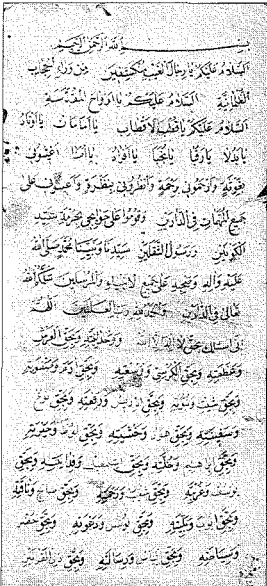 بسم الله الرحمن الرحيم
السلام عليكم يا رجال الغيب من وراء الحجاب
السلام عليكم يا ارواح المقدسة
السلام عليكم يا قطب الاقطاب يا امامان يا اوتاد
يا بدلا يا رقبا يا نجبا يا افراد يا امنا اغيثوني
بغوثة وارحموني برحمة وانظروني بنظرة واعينوني على
جميع المهمات في الدارين وقوموا على حوائجي بحرمة سيد
الكونين ورسول الثقلين سيدنا ونبينا محمد صلى الله
عليه وآله وصحبه وعلى جميع الانبياء والمرسلين سلام الله
تعالى في الدارين والحمد لله رب العالمين اللهم
اني اسئلك بحق لا اله الا الله وبحق العرش
وعظمته وبحق الكرسي وسعته وبحق
وبحق شيث ونبوته وبحق ادريس ورفعته وبحق نوح
وسفينته وبحق هود وخشيته وبحق لوط
وبحق ابراهيم وخلته وبحق اسمعيل وبحق
يوسف وغربته وبحق شعيب وبحق صالح وناقته
وبحق ايوب وبليته وبحق يونس ودعوته وبحق خضر
وسياحته وبحق الياس ورسالته وبحق ذي القرنين